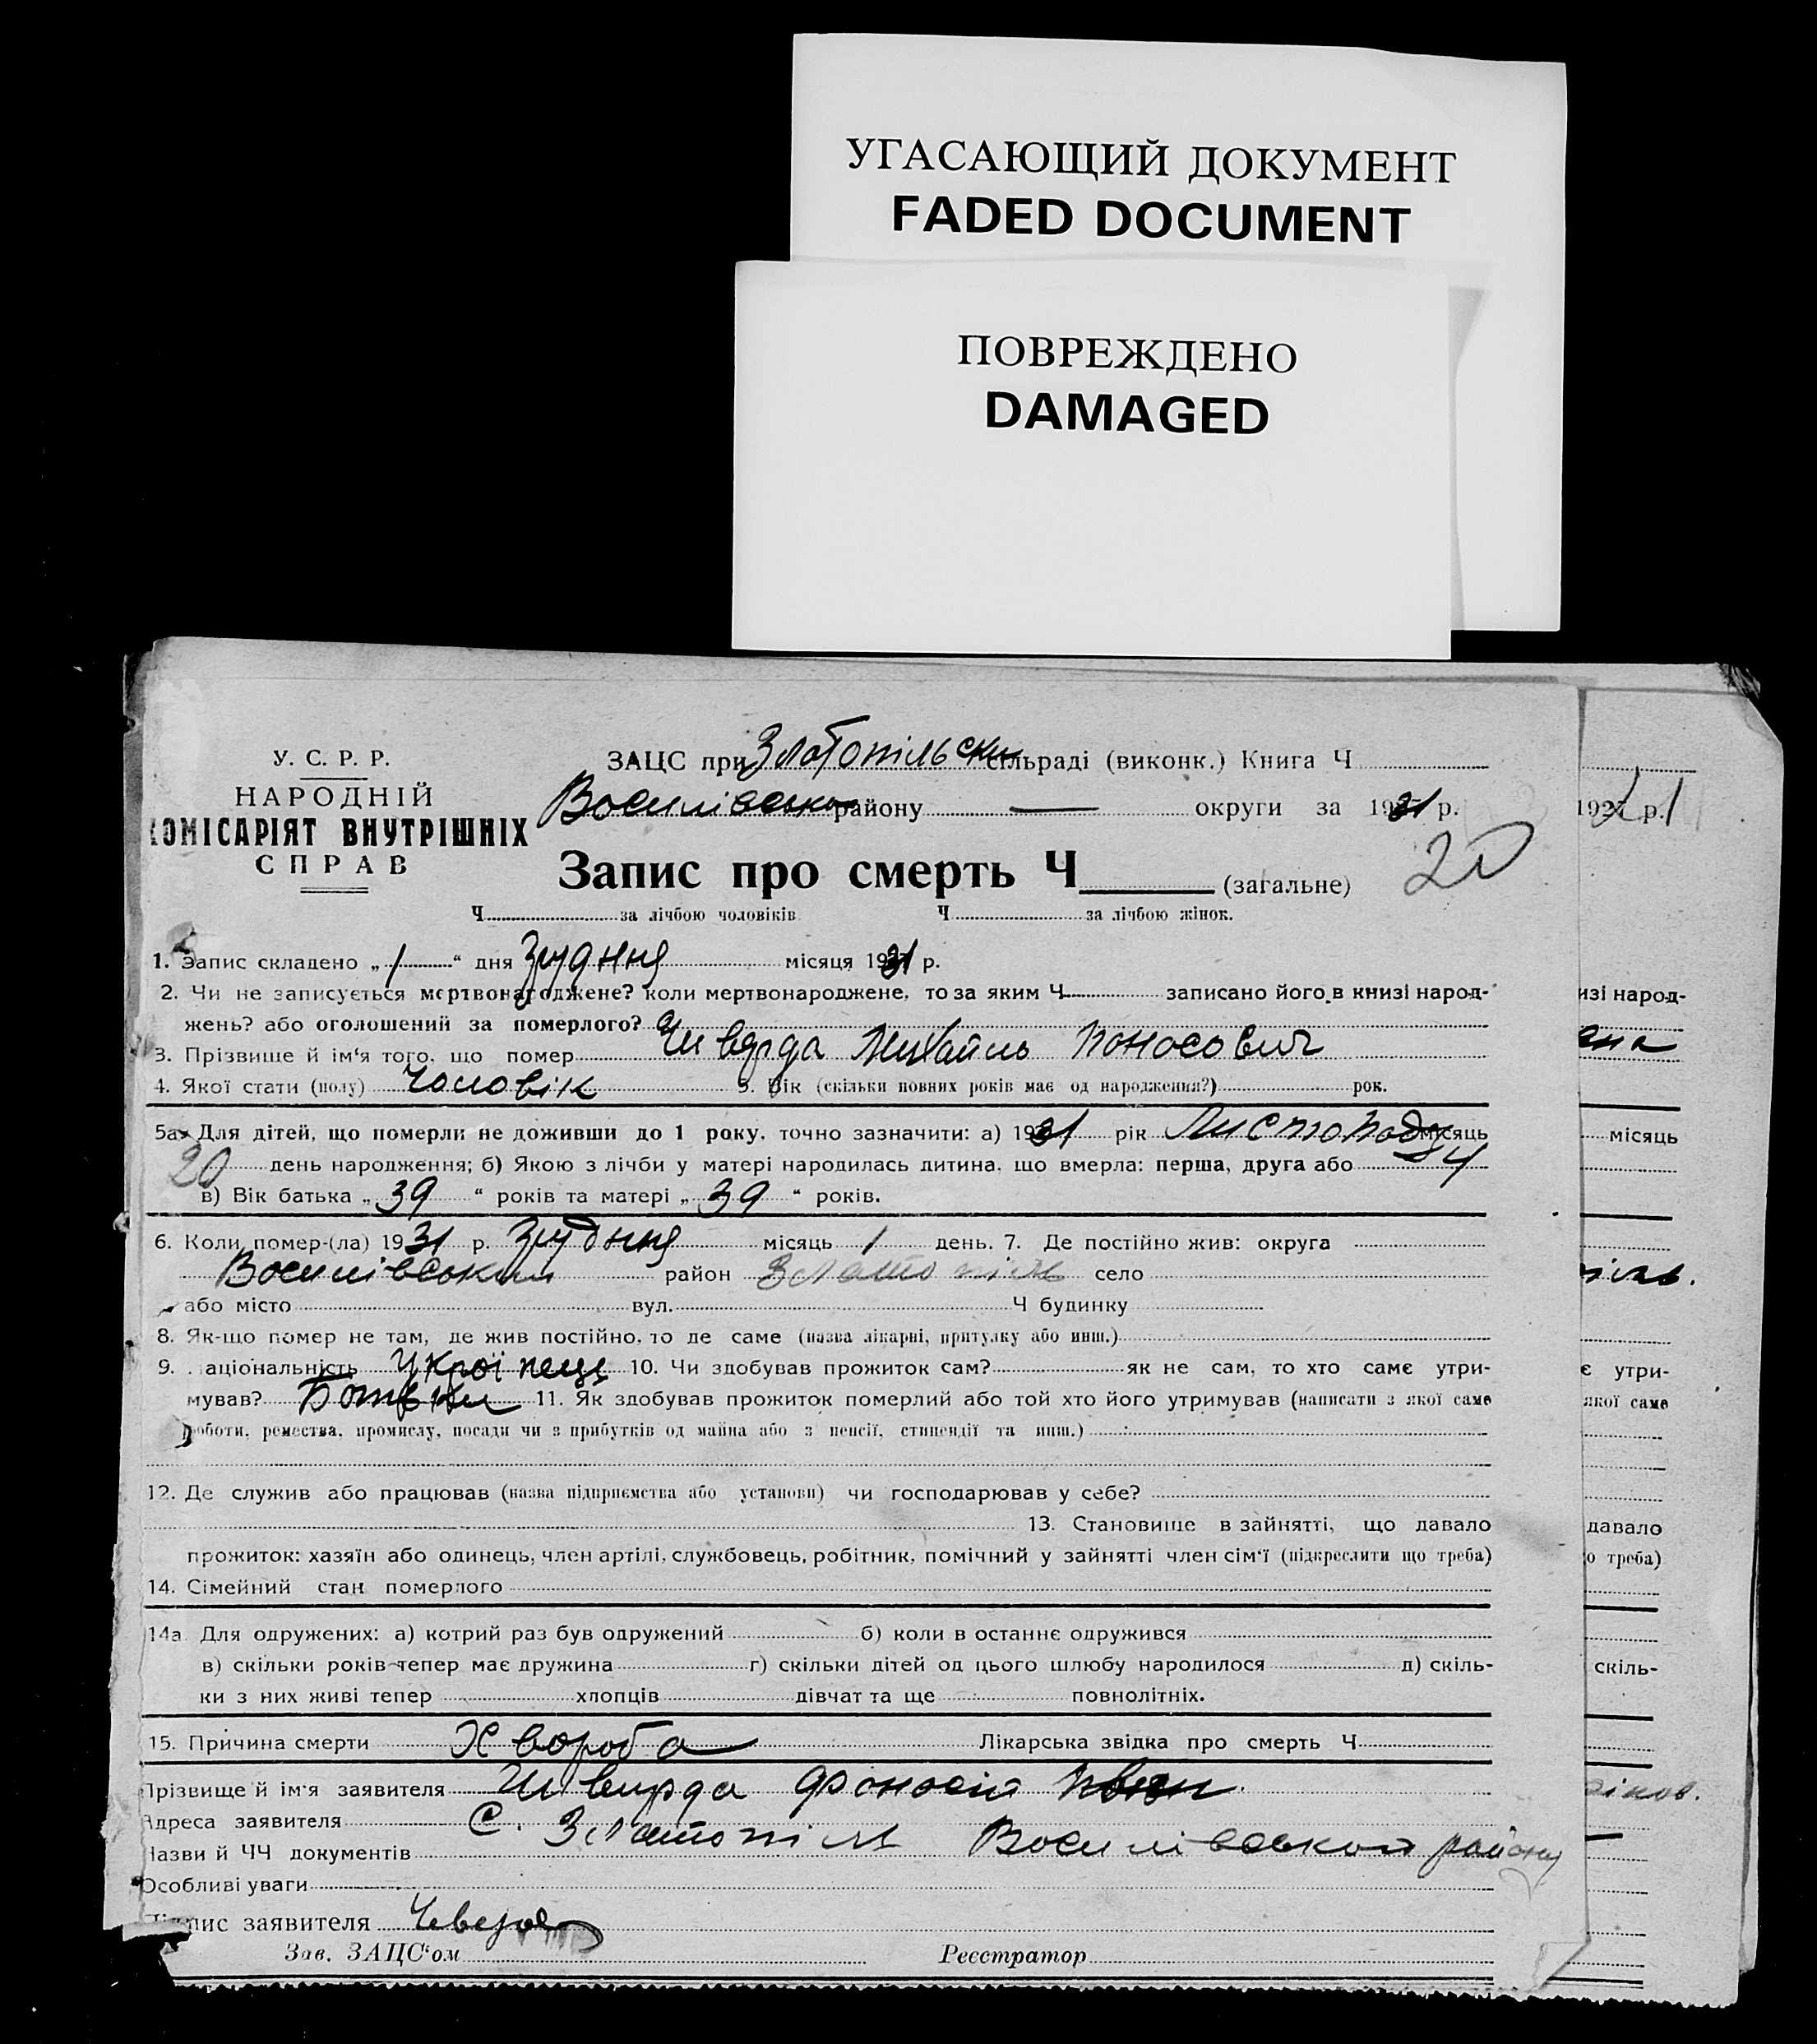 УГАСАЮЩИЙ ДОКУМЕНТ
FADED DOCUMENT
ПОВРЕЖДЕНО
DAMAGED
У. С. Р. Р.
НАРОДНІЙ
КОМІСАРІЯТ ВНУТРІШНІХ
СПРАВ
ЗАЦС при Златопільскій сільраді (виконк.) Книга Ч
району — округи за 1931 р.
Запис про смерть Ч (загальне) 20
Ч за лічбою чоловіків Ч за лічбою жінок.
1. Запис складено „ 1 “ дня Грудння місяця 1931 р.
2. Чи не записується мертвонароджене? коли мертвонароджене, то за яким Ч записано його в книзі народ-
жень? або оголошений за померлого?
3. Прізвище й ім‘я того, що помер Михайль
4. Якої стати (полу) Чоловік 5. Вік (скільки повних років має од народження?) рок.
5а. Для дітей, що померли не доживши до 1 року, точно зазначити: а) 1931 рік Листопад місяць
20 день народження; б) Якою з лічби у матері народилась дитина, що вмерла: перша, друга або 4
в) Вік батька „ 39 “ років та матері „ 39 “ років.
6. Коли помер-(ла) 1931 р. Грудння місяць 1 день. 7. Де постійно жив: округа
Василівський район Златопіль село
або місто вул. Ч будинку
8. Як-що помер не там, де жив постійно, то де саме (назва лікарні, притулку або инш.)
9. аціональність Україnець 10. Чи здобував прожиток сам? як не сам, то хто саме утри-
мував? Батьки 11. Як здобував прожиток померлий або той хто його утримував (написати з якої саме
роботи, ремества, промислу, посади чи з прибутків од майна або з пенсії, стипендії та инш.)
12. Де служив або працював (назва підприємства або установи) чи господарював у себе?
13. Становище в зайнятті, що давало
прожиток: хазяїн або одинець, член артілі, службовець, робітник, помічний у зайнятті член сім‘ї (підкреслити що треба)
14. Сімейний стан померлого
14а Для одружених: а) котрий раз був одружений б) коли в останнє одружився
в) скільки років тепер має дружина г) скільки дітей од цього шлюбу народилося д) скіль-
ки з них живі тепер хлопців дівчат та ще повнолітніх.
15. Причина смерти Хвороба Лікарська звідка про смерть Ч
Прізвище й ім‘я заявителя
Адреса заявителя С. Златопіль Василівськой району
Назви й ЧЧ документів
Особливі уваги
Підпис заявителя
Зав. ЗАЦС‘ом Реєстратор
192 р.
изі народ-
місяць
є утри-
якої саме
давало
о треба)
скіль-